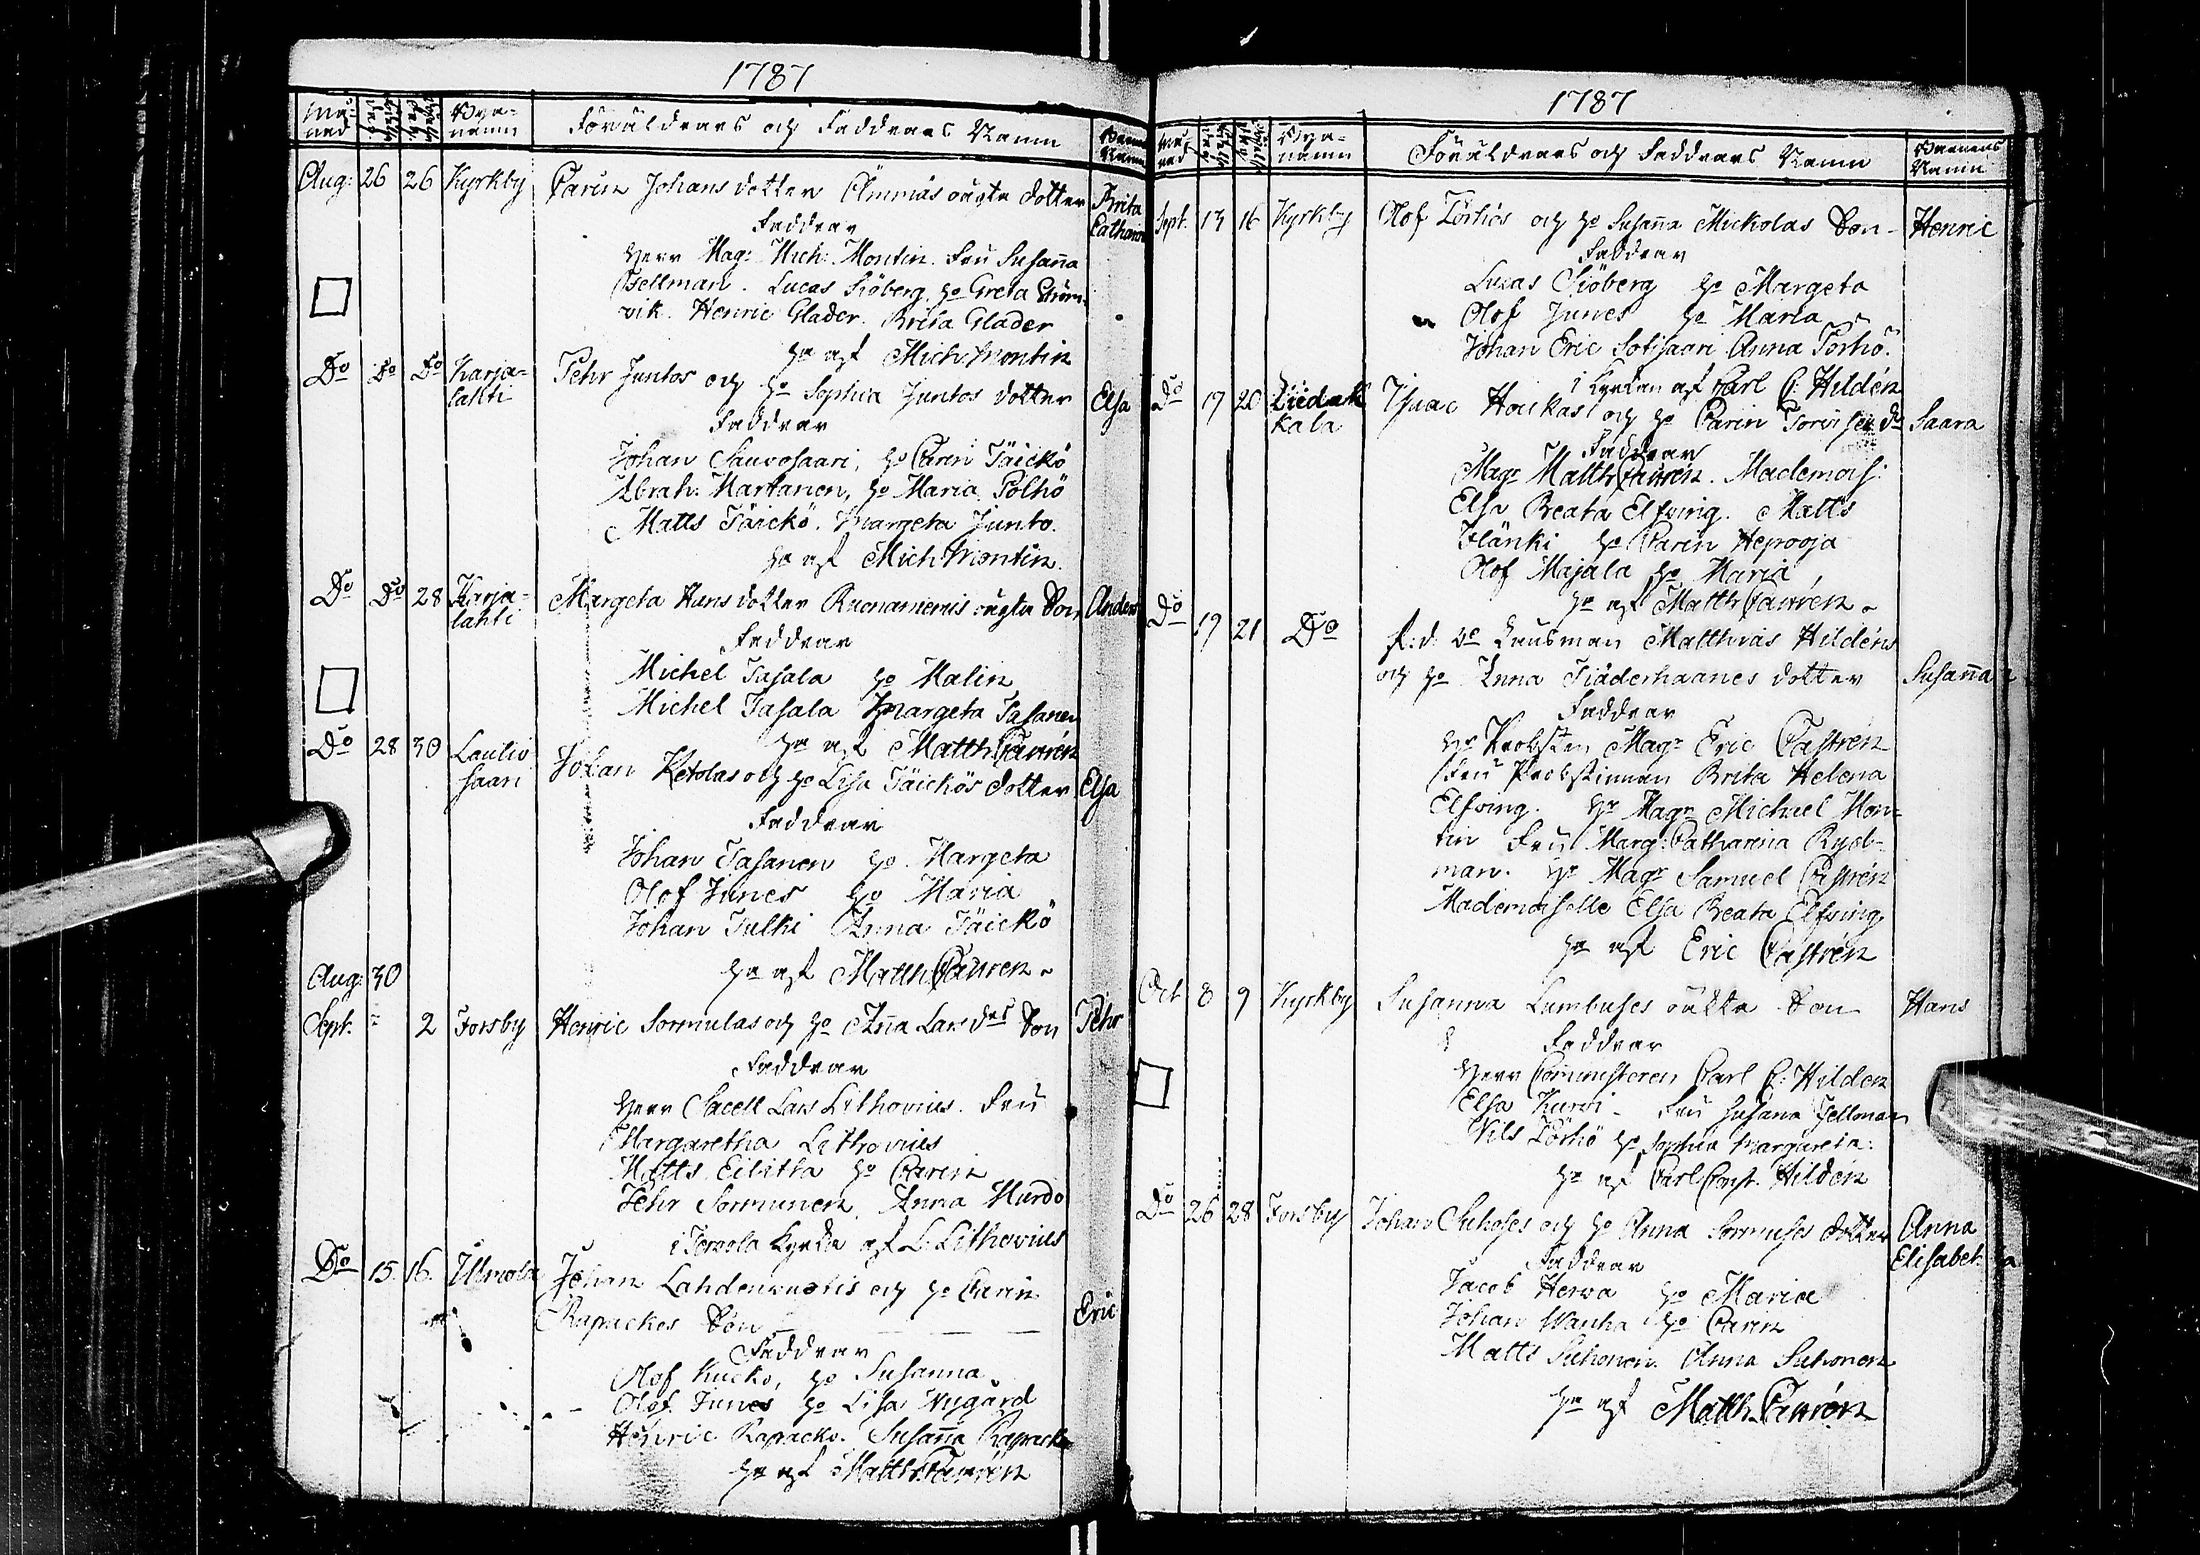 1787
Må-
nad
Bya-
namn
Föräldrars och Faddrars Namn
Barnens
Namn
Aug: 26 26 Kyrkby Carin Johans dotter Ämmäs oägta dotter Brita
Catharina
Faddrar
Herr Mag: Mich: Montin. Fru Susaña
Fellman. Lucas Siöberg, ho Greta Ström-
vik. Henric Glader. Brita Glader
Mich: Montin
Do Do Do Karja-
lahti
Pehr Juntos och ho Sophia Juntos dotter Elsa
Faddrar
Johan Sauvosaari, ho Carin Täickö
Abrah: Martanen, ho Maria Polhö
Matts Täickö. Margeta Junto.
af Mich Montin.
Do Do 28 Karja-
lahti
Margeta Hans dotter oägta Son Anders
Faddrar
Michel Tasala ho Malin
Michel Tasala Margeta Tasanen
af Matth Cauren
Do 28 30 Lautio
saari
Johan Ketolas och ho Lisa Täickös dotter Elsa
Faddrar
Johan Tasanen ho Margeta
Olof Junes ho Maria
Johan Tulki Anna Täickö
af Matth Cauren
Aug: 30
Sept. 2 Forsby Henric Sormulas och ho Aña Lars des Son Pehr
Faddrar
Herr Sacell Lars Lithovius. Fru
Margaretha Lithovius
Matts Eilitta ho Carin
Pehr Sormunen, Anna Murdo
i Tervola Kyrka af L: Lithovius
Do 15. 16. Ulriola Johan Lahdenvuotis och ho Carin
Rapackos Son Eric
Faddrar
Olof Kucko, ho Susanna
Olof Junes ho Lisa Nygård
Henric Rapacko. Susaña Rapacko
af Matth Cauren
1787
Må-
nad
Bya-
namn
Föräldrars och Faddrars Namn
Barnens
Namn
Sept. 13 16 Kyrkby Olof Törhös och ho Susaña Mickolas Son Henric
Faddrar
Lucas Siöberg ho Margeta
Olof Junes ho Maria
Johan Eric Sotisaari Anna Törhö.
i Kyrkan af Carl C: Hildén
Do 17 20 Liedak
kala
Isaac Houkas och ho Carin do Saara
Faddrar
Magr Matth Cauren. Mademois:
Elsa Beata Elfving. Matts
Ilänki ho Carin Hepooja
Olof Majala ho Maria
af Matth Cauren
Do 19 21 Do f: d: Länsman Matthias Hildéns
och ho Anna Fiäderhaanes dotter Susaña
Faddrar
Hr Probsten Magr Eric Castrén
Fru Probstinnan Brita Helena
Elfving. Hr Magr Michael Mon-
tin Fru Marg: Catharina Ryd-
man. Hr Magr Samuel Castrén
Mademoiselle Elsa Beata Elfving
af Eric Castrén
Oct 8 9 Kyrkby Susanna Lambuses oäkta Son Hans
Faddrar
Herr Comministeren Carl C: Hildén
Elsa Kurvi. Fru Susana Fellman
Nils Törhö ho Sophia Margareta.
af Carl Const. Hildén
Do 26 28 Forsby Johan Suhoses och ho Anna Sormuses dotter Anna
Elisabet
Faddrar
Jacob Herva ho Maria
Johan Wanha ho Carin
Matts Suhonen. Anna Suhonen
af Matth Cauren